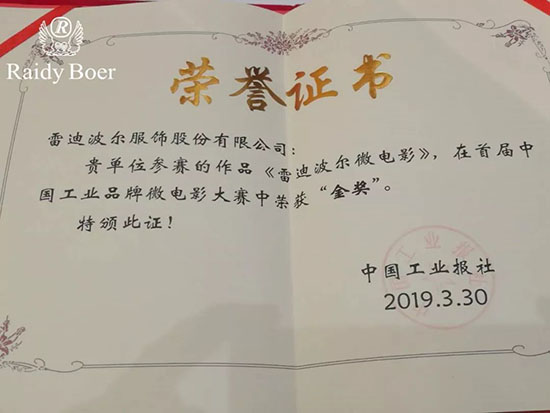 Raidy Boer
荣誉证书
雷迪波尔服饰股份有限公司：
贵单位参赛的作品《雷迪波尔微电影》，在首届中
国工业品牌微电影大赛中荣获“金奖”。
特颁此证！
中国工业报社
2019.3.30